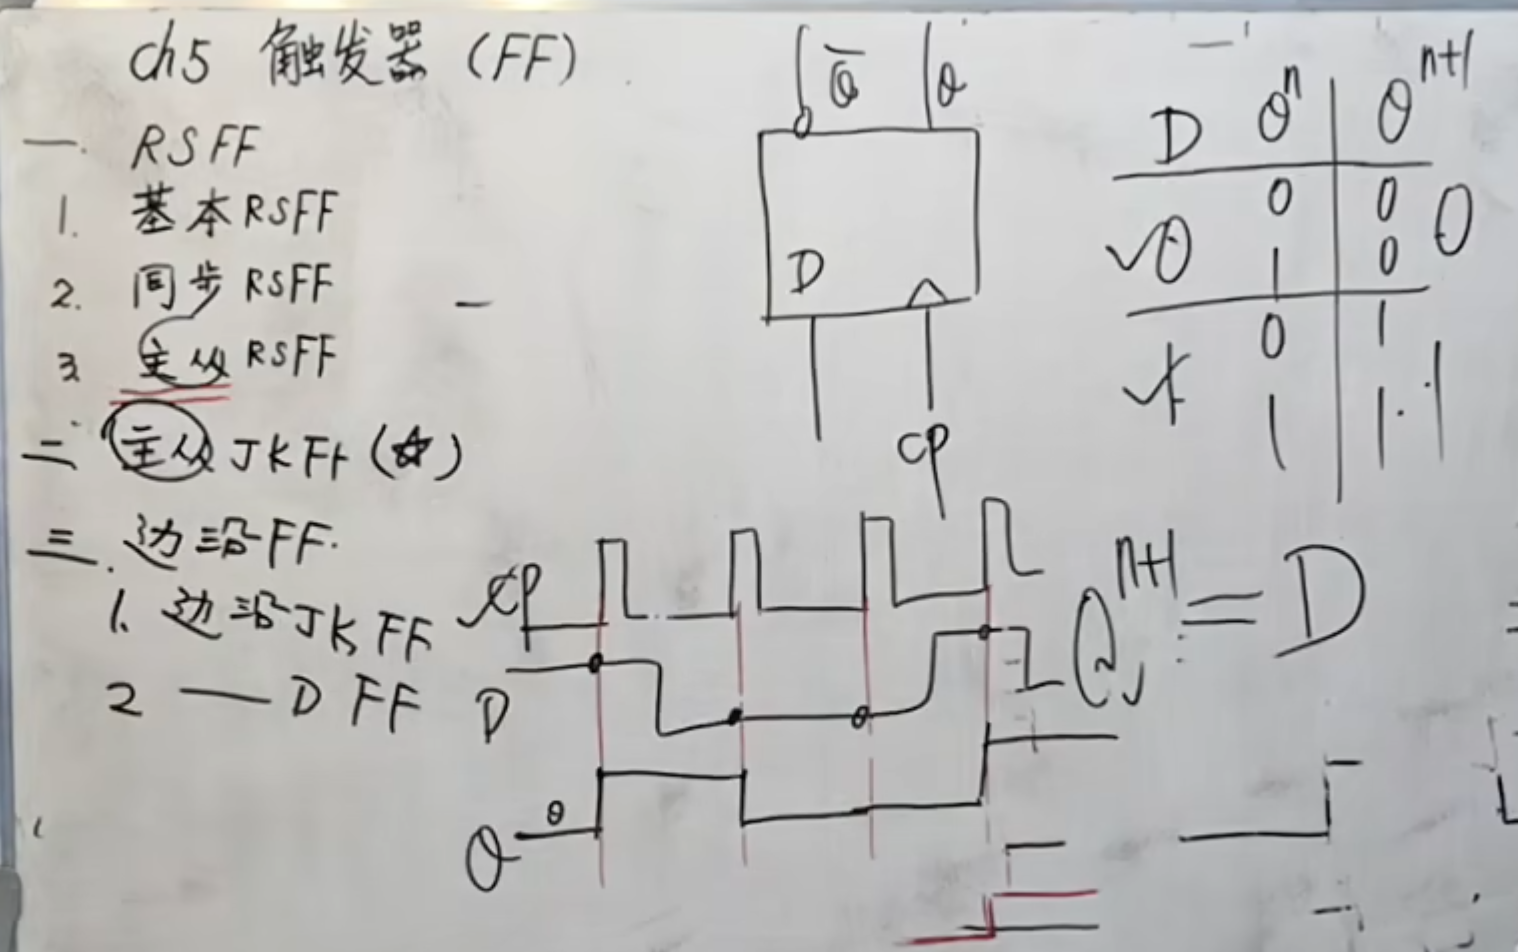 ch5 触发器 (FF)
一. RSFF
1. 基本RSFF
2. 同步RSFF
3. 主从RSFF
二 主从JKFF (☆)
三. 边沿FF.
1. 边沿JKFF
2 — D FF
Q̅ Q
D
CP
D Qⁿ Qⁿ⁺¹
0 0
✓0 1 0 0
0 1
✓1 1 1 1
Qⁿ⁺¹ = D
CP
D
Q 0